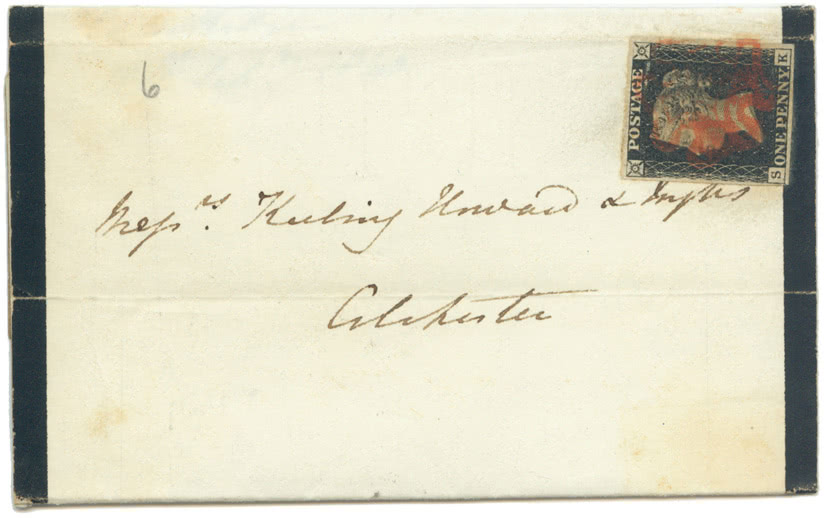 6
POSTAGE
ONE PENNY.
S K
Mess.rs Keeling Howard &
Colchester